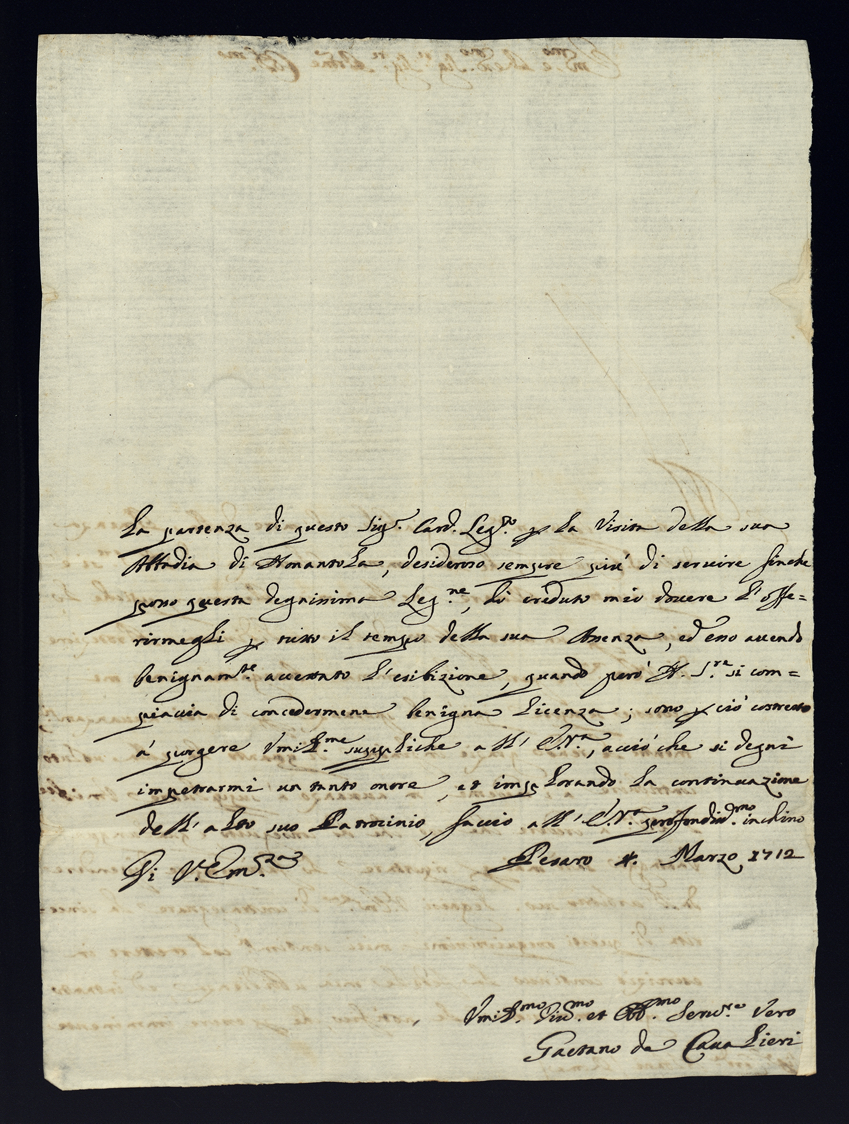 La partenza di questo Sig.r Card. Leg.to p la Visita della sua
Abbadia di Nonantola, desideroso sempre più di servire finche
posso questa degnissima Leg.ne, hò creduto mio dovere l'offe=
rirmegli p tutto il tempo della sua Assenza, ed esso avendo
benignam.te accettato l'esibizione, quando però N. S.re si com=
piaccia di concedermene benigna licenza; sono p ciò costretto
à porgere Umil.me suppliche all' E.V.ra, acciò che si degni
impetrarmi un tanto onore, et implorando la continuazione
dell' alto suo Patrocinio, faccio all' E.V.ra profondiss.mo inchino
Di V. Em.za Pesaro 4. Marzo 1712
Umil.mo Div.mo et Obb.mo Serv.re Vero
Gaetano de Cavalieri